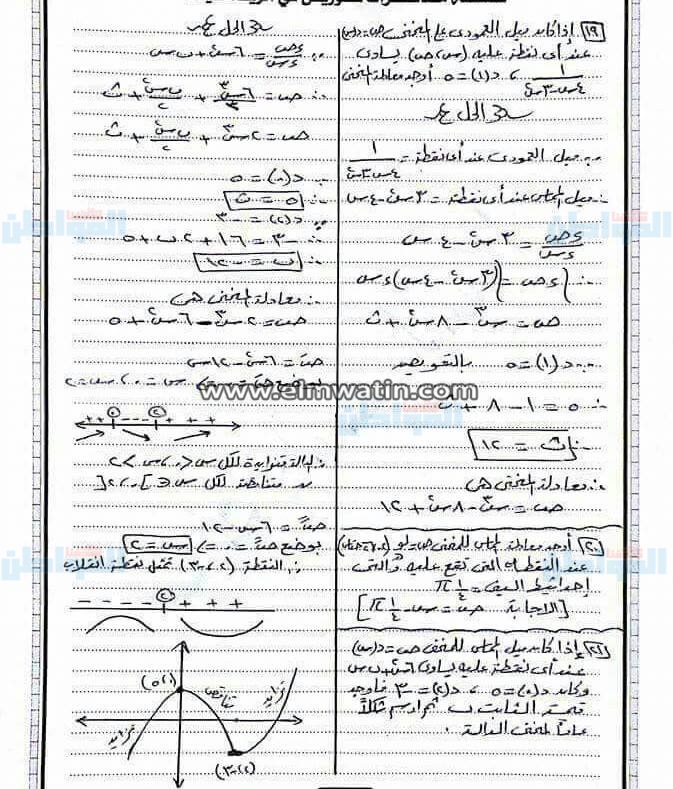 ١٩ إذا كان ميل العمودى على المنحنى ص = د(س)
عند أى نقطة عليه (س، ص) يساوى
١ / ٤س - ٣س٢ ، د(١) = ٥ أوجد معادلة المنحنى
الحل
∵ ميل العمودى عند أى نقطة = ١ / ٤س - ٣س٢
∴ ميل المماس عند أى نقطة = ٣س٢ - ٤س
ءص / ءس = ٣س٢ - ٤س
∴ ∫ءص = ∫(٣س٢ - ٤س) ءس
ص = س٣ - ٨س٢ + ث
∵ د(١) = ٥ بالتعويض
∴ ٥ = ١ - ٨ + ث
∴ ث = ١٢
∴ معادلة المنحنى هى
ص = س٣ - ٨س٢ + ١٢
٢٠ أوجد معادلة المماس للمنحنى ص = لو
عند النقطة التى تقع عليه والتى
إحداثيها السينى = ١/٤ π
[الاجابة ص = س - ١/٤ π]
٢١ إذا كان ميل المماس للمنحنى ص = د(س)
عند أى نقطة عليه يساوى ٦س٢ + ب س
وكان د(٠) = ٥ ، د(٢) = -٣ فأوجد
قيمة الثابت ب ثم ارسم شكلاً
عاماً لمنحنى الدالة .
الحل
∵ ءص / ءس = ٦س٢ + ب س
∴ ص = ٦س٣ / ٣ + ب س٢ / ٢ + ث
ص = ٢س٣ + ب س٢ / ٢ + ث
∵ د(٠) = ٥
∴ ٥ = ث
∵ د(٢) = -٣
∴ -٣ = ١٦ + ٢ب + ٥
∴ ب = -١٢
∴ معادلة المنحنى هى
ص = ٢س٣ - ٦س٢ + ٥
صَ = ٦س٢ - ١٢س
بوضع صَ = ٠ س = ٠ ، س = ٢
++ ٠ --- ٢ + + +
∴ الدالة تزايدية لكل س < ٠ ، س > ٢
متناقصة لكل س ∈ ]٠، ٢[
صً = ٦س - ١٢
بوضع صً = ٠ ⇐ س = ٢
∴ النقطة (٢، -٣) تمثل نقطة انقلاب
- - - - ٢ + + +
(٥،٠)
تزايد
تناقص
تزايد
(٢، -٣)
www.elmwatin.com
المواطن
المواطن
المواطن
المواطن
المواطن
المواطن